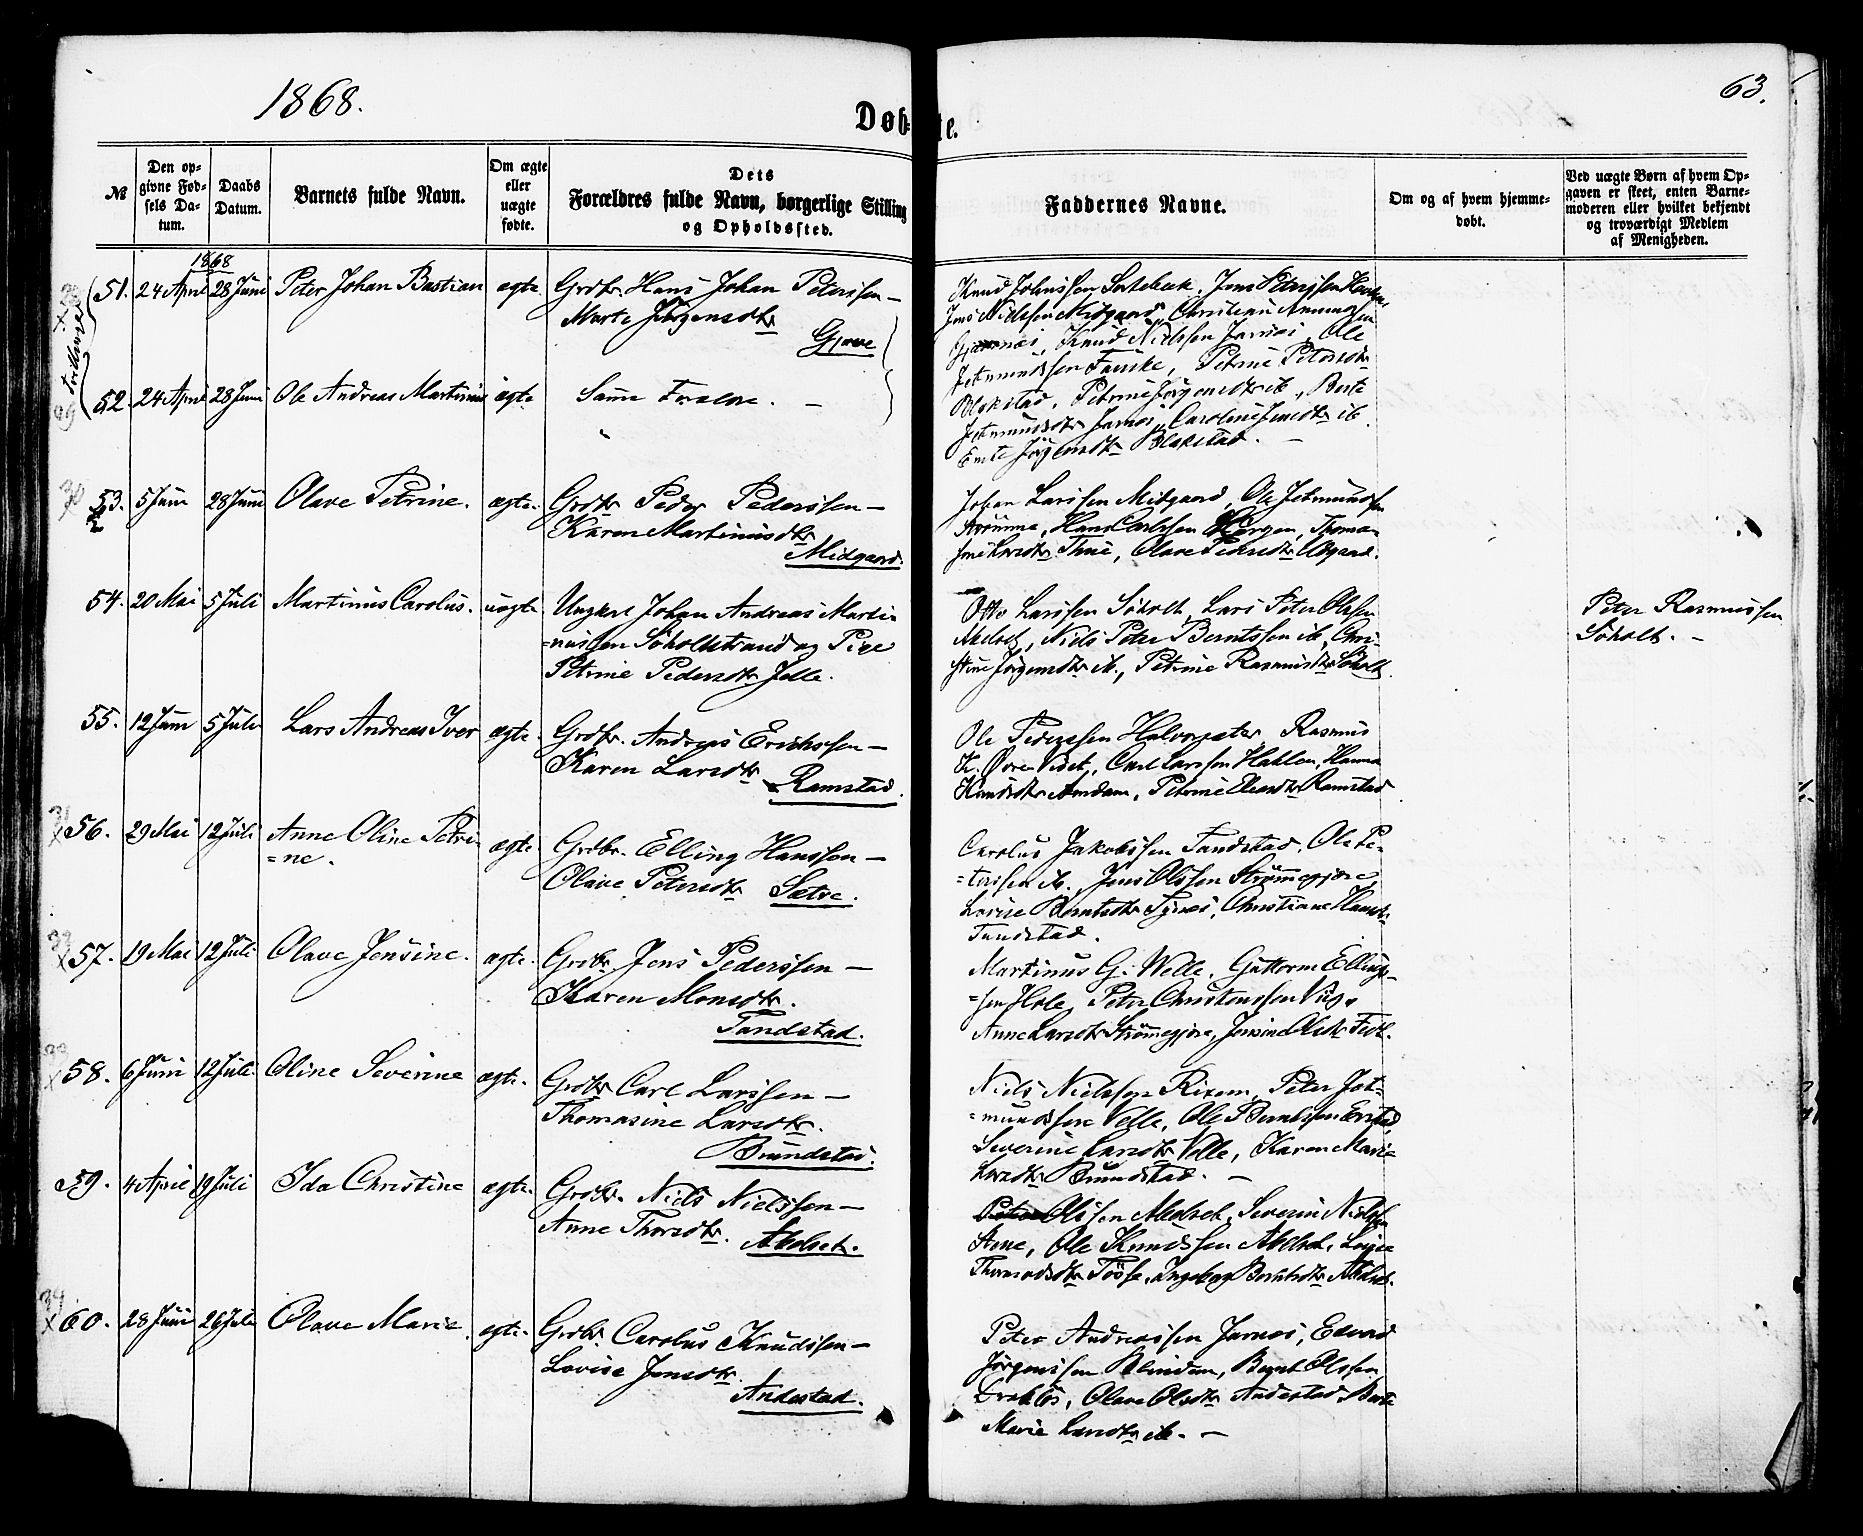 1868.
63.
Døbte.
№
Den op-
givne Fød-
sels Da-
tum.
Daabs
Datum.
Barnets fulde Navn.
Om ægte
eller
uægte
fødte.
Dets
Forældres fulde Navn, borgerlige Stilling
og Opholdssted.
Faddernes Navne.
Om og af hvem hjemme-
døbt.
Ved uægte Børn af hvem Op-
gaven er skeet, enten Barne-
moderen eller hvilket bekjendt
og troværdigt Medlem
af Menigheden.
1868
51. 24 April 28 Juni Peter Johan Bastian ægte. Grdbr. Hans Johan Peterssen —
Marte Jørgensdtr
Gjøve
Jens Nielssen Midgaard, Christian
Knud Nielssen Jarnes, Ole
Jetmundssen Fauske, Petrine Petersdtr
52. 24 April 28 Juni Ole Andreas Martinus ægte. Samme Forældre. —
Blakstad, Petrine Jørgensdtr ib., Berte
Jetmundsdtr Jarnes, Caroline Jensdtr ib
Jørgensdtr Blakstad. —
53. 5 Juni 28 Juni Olave Petrine. ægte. Grdbr Peder Pederssen —
Karen Martinusdtr
Midgaard.
Johan Larssen Midgaard, Ole Jetmundssen
Hans Carlssen Thoma-
sine Larsdtr Thue, Olave Pedersdtr
54. 20 Mai 5 Juli Martinus Carolus. uægte. Ungkarl Johan Andreas Marti-
=nussen Søholtstrand og Pige
Petrine Pedersdtr Jelle.
Otto Larssen Søholt, Lars Peter Olssen
Abelset, Niels Peter Berntssen ib, Chri-
stine Jørgensdtr ib., Petrine Rasmusdtr Søholt.
Peter Rasmussen
Søholt. —
55. 12 Juni 5 Juli Lars Andreas Iver ægte. Grdbr. Andreas Erichssen —
Karen Larsdtr
Ramstad.
Ole Pederssen Rasmus
K. Øvre Viset, Carl Larssen Hanna
Knudsdtr Amdam, Petrine Ramstad
56. 29 Mai 12 Juli Anne Oline Petri-
=ne.
ægte. Grdbr. Elling Hanssen —
Olave Petersdtr Sætre.
Carolus Jakobssen Tandstad, Ole Pe-
=terssen ib., Jens Olssen Strømmegjære
Lovise Berntsdtr Christiane Hansdtr
Tandstad.
57. 19 Mai 12 Juli Olave Jensine. ægte. Grdbr. Jens Pederssen —
Karen Monsdtr.
Tandstad.
Martinus G. Welle, Guttorm Ellings-
=sen Hole, Peter Christenssen Viig,
Anne Larsdtr Strømmegjære, Jensine Olsdtr
58. 6 Juni 12 Juli Oline Severine ægte. Grdbr Carl Larssen —
Thomasine Larsdtr.
Brundstad.
Niels Nielssen Peter Jet-
=mundssen Velle, Ole Berntssen
Severine Larsdtr Velle, Karen Marie
Larsdtr Brundstad. —
59. 4 April 19 Juli Ida Christine ægte. Grdbr. Niels Nielssen —
Anne Thorsdtr. Abelset.
Olssen Abelset, Severin Nielssen
Ole Knudssen Abelset,
Ingeborg Berntsdtr Abelset.
60. 28 Juni 26 Juli Olave Marie. ægte. Grdbr Carolus Knudssen —
Lovise Jensdtr
Andestad.
Peter Andreassen Jarnes, Edvard
Jørgenssen Blindem, Bernt Olssen
Olave Olsdtr Andestad, Berte
Marie Larsdtr ib. —